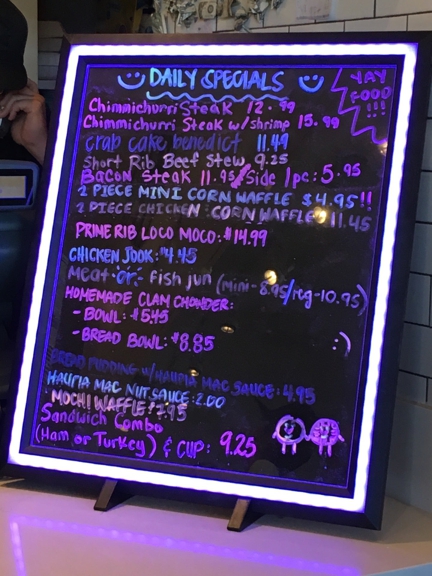 DAILY SPECIALS
YAY FOOD !!!
Chimmichurri Steak 12.99
Chimmichurri Steak w/shrimp 15.99
crab cake benedict 11.49
Short Rib Beef Stew 9.25
Bacon Steak 11.95/Side 1pc: 5.95
2 PIECE MINI CORN WAFFLE $4.95!!
2 PIECE CHICKEN CORN WAFFLE 11.45
PRIME RIB LOCO MOCO: $14.99
CHICKEN JOOK: $4.45
Meat or Fish Jun (mini-8.95/reg-10.95)
HOMEMADE CLAM CHOWDER:
- BOWL: $5.45
- BREAD BOWL: $8.85
:)
BREAD PUDDING W/HAUPIA MAC SAUCE: 4.95
HAUPIA MAC NUT SAUCE: 2.00
MOCHI WAFFLE: 7.95
Sandwich Combo
(Ham or Turkey) & CUP: 9.25